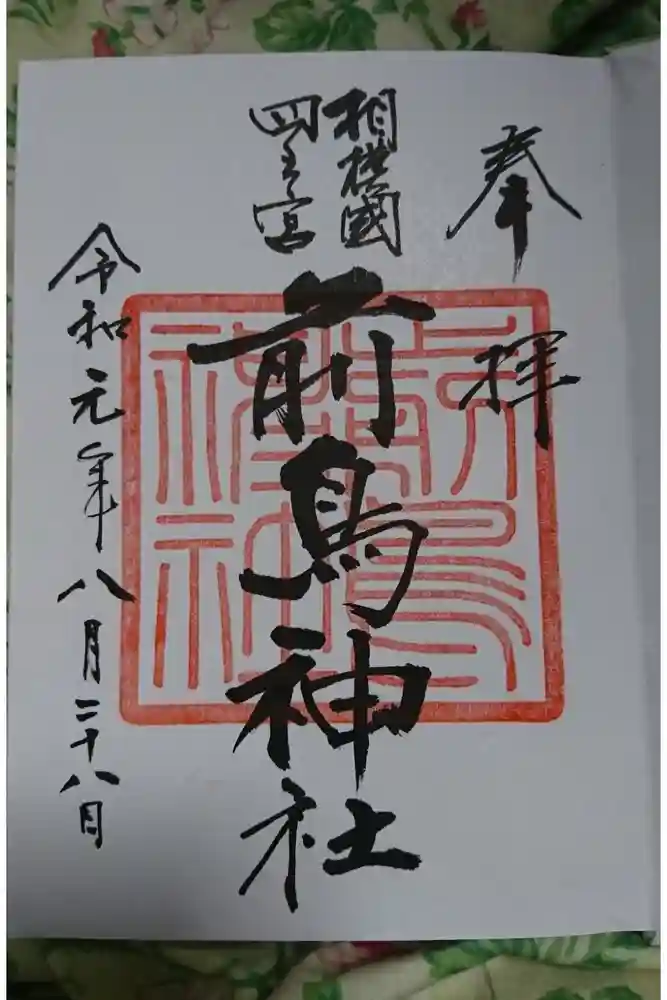 奉拝
相模國
四之宮
前鳥神社
令和元年八月二十八日